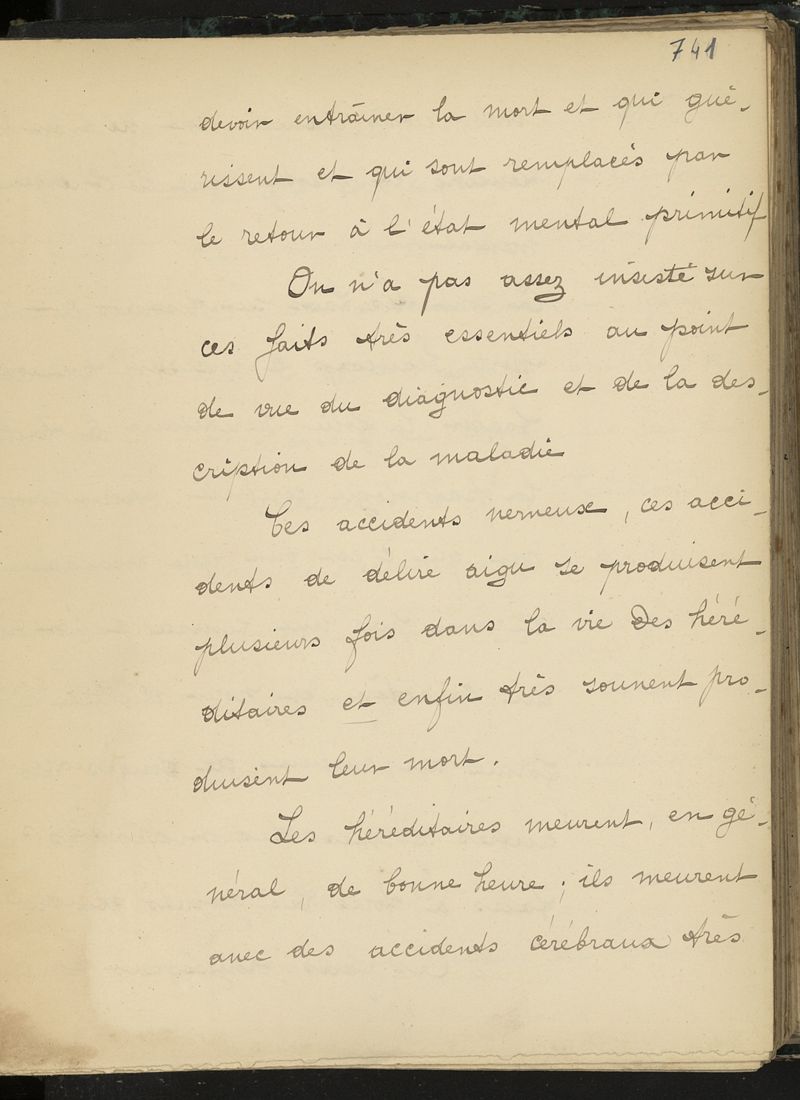 741
devoir entraîner la mort et qui gué-
rissent et qui sont remplacés par
le retour à l'état mental primitif
On n'a pas assez insisté sur
ces faits très essentiels au point
de vue du diagnostic et de la des-
cription de la maladie
Ces accidents nerveux, ces acci-
dents de délire aigu se produisent
plusieurs fois dans la vie des héré-
ditaires et enfin très souvent pro-
duisent leur mort.
Les héréditaires meurent, en gé-
néral, de bonne heure ; ils meurent
avec des accidents cérébraux très